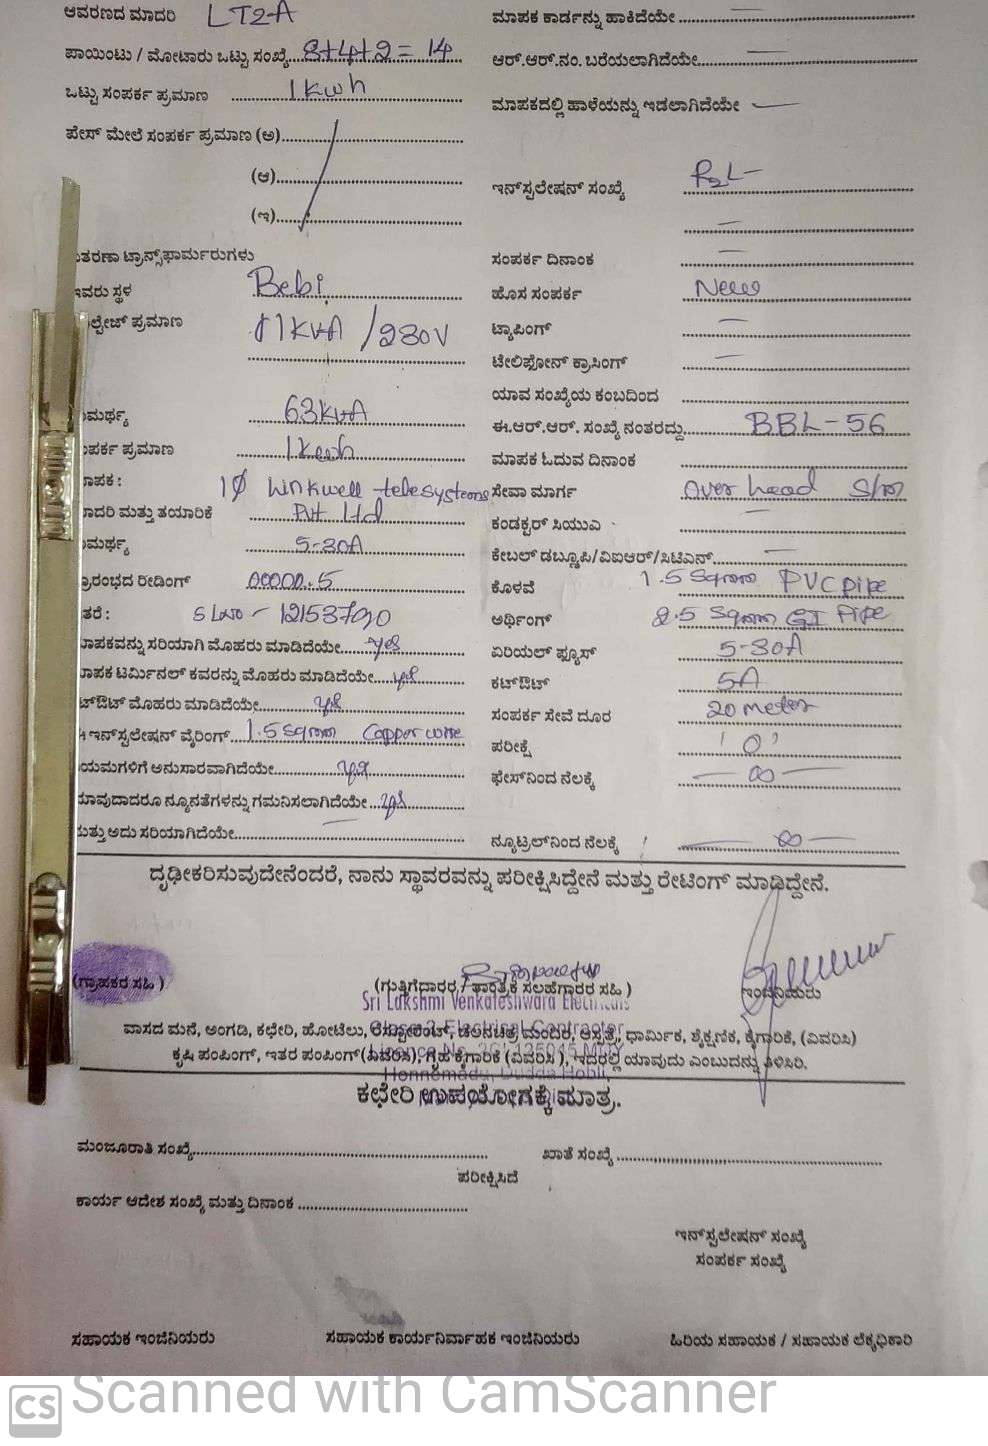 ಆವರಣದ ಮಾದರಿ LT2-A
ಪಾಯಿಂಟು / ಮೋಟಾರು ಒಟ್ಟು ಸಂಖ್ಯೆ 8+4+2 = 14
ಒಟ್ಟು ಸಂಪರ್ಕ ಪ್ರಮಾಣ 1 kwh
ಪೇಸ್ ಮೇಲೆ ಸಂಪರ್ಕ ಪ್ರಮಾಣ (ಅ)
(ಆ)
(ಇ)
ತರಣಾ ಟ್ರಾನ್ಸ್‌ಫಾರ್ಮರುಗಳು
ಇವರು ಸ್ಥಳ Bebi
ಲ್ಟೇಜ್ ಪ್ರಮಾಣ 11KVA / 230V
ಮರ್ಥ್ಯ 63KVA
ಂಪರ್ಕ ಪ್ರಮಾಣ 1 kwh
ಾಪಕ : 1Ø Linkwell telesystems
ಾದರಿ ಮತ್ತು ತಯಾರಿಕೆ Pvt Ltd
ಮರ್ಥ್ಯ 5-30A
್ರಾರಂಭದ ರೀಡಿಂಗ್ 00000.5
ತರೆ : SLNO - 12153790
ಾಪಕವನ್ನು ಸರಿಯಾಗಿ ಮೊಹರು ಮಾಡಿದೆಯೇ yes
ಾಪಕ ಟರ್ಮಿನಲ್ ಕವರನ್ನು ಮೊಹರು ಮಾಡಿದೆಯೇ yes
ಟ್‌ಔಟ್ ಮೊಹರು ಮಾಡಿದೆಯೇ yes
ಇನ್‌ಸ್ಟಲೇಷನ್ ವೈರಿಂಗ್ 1.5 Sqmm Copper wire
ಯಮಗಳಿಗೆ ಅನುಸಾರವಾಗಿದೆಯೇ yes
ಯಾವುದಾದರೂ ನ್ಯೂನತೆಗಳನ್ನು ಗಮನಿಸಲಾಗಿದೆಯೇ yes
ಮತ್ತು ಅದು ಸರಿಯಾಗಿದೆಯೇ —
ಮಾಪಕ ಕಾರ್ಡನ್ನು ಹಾಕಿದೆಯೇ —
ಆರ್.ಆರ್.ನಂ. ಬರೆಯಲಾಗಿದೆಯೇ —
ಮಾಪಕದಲ್ಲಿ ಹಾಳೆಯನ್ನು ಇಡಲಾಗಿದೆಯೇ —
ಇನ್‌ಸ್ಟಲೇಷನ್ ಸಂಖ್ಯೆ
—
ಸಂಪರ್ಕ ದಿನಾಂಕ —
ಹೊಸ ಸಂಪರ್ಕ New
ಟ್ಯಾಪಿಂಗ್ —
ಟೆಲಿಫೋನ್ ಕ್ರಾಸಿಂಗ್ —
ಯಾವ ಸಂಖ್ಯೆಯ ಕಂಬದಿಂದ
ಈ.ಆರ್.ಆರ್. ಸಂಖ್ಯೆ ನಂತರದ್ದು BBL-56
ಮಾಪಕ ಓದುವ ದಿನಾಂಕ
ಸೇವಾ ಮಾರ್ಗ Over head S/m
ಕಂಡಕ್ಟರ್ ಸಿಯುಎ
ಕೇಬಲ್ ಡಬ್ಲೂಪಿ/ವಿಐಆರ್/ಸಿಟಿಎನ್ —
ಕೊಳವೆ 1.5 Sqmm PVC pipe
ಅರ್ಥಿಂಗ್ 2.5 Sqmm GI Pipe
ಏರಿಯಲ್ ಫ್ಯೂಸ್ 5-30A
ಕಟ್‌ಔಟ್ 5A
ಸಂಪರ್ಕ ಸೇವೆ ದೂರ 20 meter
ಪರೀಕ್ಷೆ '0'
ಫೇಸ್‌ನಿಂದ ನೆಲಕ್ಕೆ — ∞ —
ನ್ಯೂಟ್ರಲ್‌ನಿಂದ ನೆಲಕ್ಕೆ — ∞ —
ದೃಢೀಕರಿಸುವುದೇನೆಂದರೆ, ನಾನು ಸ್ಥಾವರವನ್ನು ಪರೀಕ್ಷಿಸಿದ್ದೇನೆ ಮತ್ತು ರೇಟಿಂಗ್ ಮಾಡಿದ್ದೇನೆ.
(ಗ್ರಾಹಕರ ಸಹಿ ) (ಗುತ್ತಿಗೆದಾರರ / ತಾಂತ್ರಿಕ ಸಲಹೆಗಾರರ ಸಹಿ ) ಇಂಜಿನಿಯರು
Sri Lakshmi Venkateshwara Electricals
Class-2 Electrical Contractor
ವಾಸದ ಮನೆ, ಅಂಗಡಿ, ಕಛೇರಿ, ಹೋಟೆಲು, ರೆಸ್ಟೋರೆಂಟ್, ಚಲನಚಿತ್ರ ಮಂದಿರ, ಆಸ್ಪತ್ರೆ, ಧಾರ್ಮಿಕ, ಶೈಕ್ಷಣಿಕ, ಕೈಗಾರಿಕೆ, (ವಿವರಿಸಿ)
ಕೃಷಿ ಪಂಪಿಂಗ್, ಇತರ ಪಂಪಿಂಗ್ (ವಿವರಿಸಿ), ಗೃಹ ಕೈಗಾರಿಕೆ (ವಿವರಿಸಿ ), ಇದರಲ್ಲಿ ಯಾವುದು ಎಂಬುದನ್ನು ತಿಳಿಸಿರಿ.
Honnemadu, Dudda Hobli,
ಕಛೇರಿ ಉಪಯೋಗಕ್ಕೆ ಮಾತ್ರ.
ಮಂಜೂರಾತಿ ಸಂಖ್ಯೆ ಖಾತೆ ಸಂಖ್ಯೆ
ಪರೀಕ್ಷಿಸಿದೆ
ಕಾರ್ಯ ಆದೇಶ ಸಂಖ್ಯೆ ಮತ್ತು ದಿನಾಂಕ
ಇನ್‌ಸ್ಟಲೇಷನ್ ಸಂಖ್ಯೆ
ಸಂಪರ್ಕ ಸಂಖ್ಯೆ
ಸಹಾಯಕ ಇಂಜಿನಿಯರು ಸಹಾಯಕ ಕಾರ್ಯನಿರ್ವಾಹಕ ಇಂಜಿನಿಯರು ಹಿರಿಯ ಸಹಾಯಕ / ಸಹಾಯಕ ಲೆಕ್ಕಧಿಕಾರಿ
CS Scanned with CamScanner